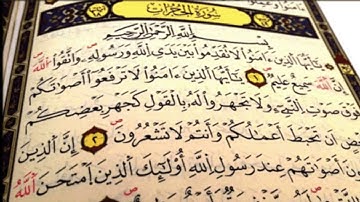 سُورَةُ الحُجُرَاتِ
بِسْمِ اللَّهِ الرَّحْمَٰنِ الرَّحِيمِ
يَا أَيُّهَا الَّذِينَ ءَامَنُوا لَا تُقَدِّمُوا بَيْنَ يَدَيِ اللَّهِ وَرَسُولِهِ وَاتَّقُوا اللَّهَ
إِنَّ اللَّهَ سَمِيعٌ عَلِيمٌ ١ يَا أَيُّهَا الَّذِينَ ءَامَنُوا لَا تَرْفَعُوا أَصْوَاتَكُمْ
فَوْقَ صَوْتِ النَّبِيِّ وَلَا تَجْهَرُوا لَهُ بِالْقَوْلِ كَجَهْرِ بَعْضِكُمْ
لِبَعْضٍ أَن تَحْبَطَ أَعْمَالُكُمْ وَأَنتُمْ لَا تَشْعُرُونَ ٢ إِنَّ الَّذِينَ
يَغُضُّونَ أَصْوَاتَهُمْ عِندَ رَسُولِ اللَّهِ أُولَٰئِكَ الَّذِينَ امْتَحَنَ اللَّهُ